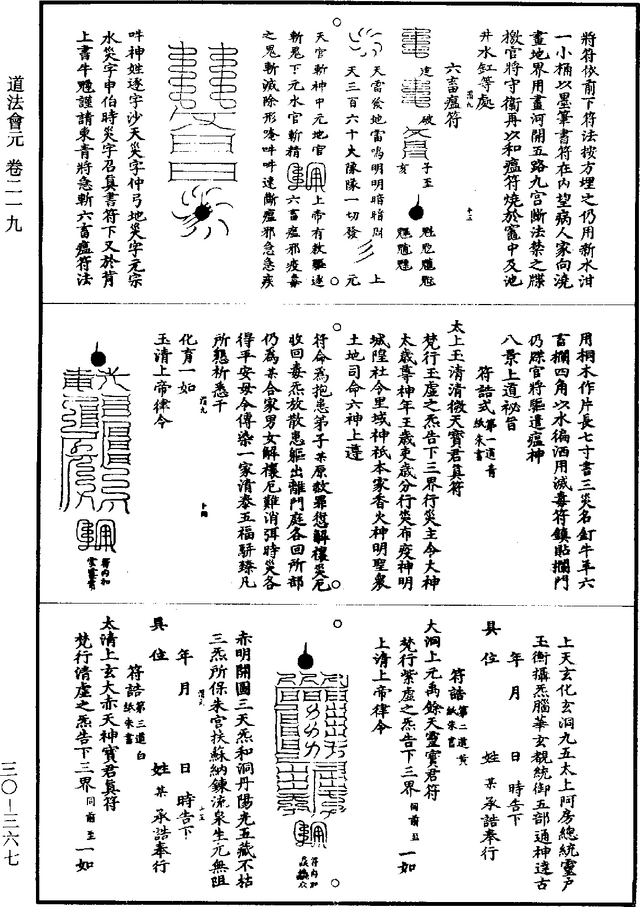 道法會元 卷二一九
三〇-三六七
將符依前下符法按方埋之仍用新水泔
一小桶以墨筆書符在內望病人家向澆
畫地界用畫河開五路九宮斷法禁之牒
檄官將守衛再以和瘟符燒於竈中及池
井水缸等處
六畜瘟符
天雷後地雷鳴明明暗暗
上
天三百六十大隊隊一切發
元
天官斬神中元地官
上帝有敕驅逐
斬鬼下元水官斬精
六畜瘟邪疫毒
之鬼斬滅除形唵吽吽速斷瘟邪急急疾
吽神姓逐字沙天災字仲弓地災字元宗
水災字申伯時災字召真書符下又於背
上書牛魁謹請東青將急斬六畜瘟符法
用桐木作片長七寸書三災名釘牛羊六
畜欄四角以水徧洒用滅毒符鎮貼欄門
仍牒官將驅遣瘟神
八景上道祕旨
符誥式 第一道青紙朱書
太上玉清清微天寶君真符
梵行玉虛之炁告下三界行災主令大神
太歲尊神年王歲吏歲分行災布疫神明
城隍社令里域神祇本家香火神明聖衆
土地司命六神上遵
符命為抱患弟子某原赦罪愆解禳災厄
收回毒炁放散患軀出離門庭各回所部
仍為某合家男女解禳厄難消弭時災各
得平安毋令傳染一家清泰五福駢臻凡
所懇祈悉干
化育一如
玉清上帝律令
符內和
上天玄化玄洞九五太上阿房總統靈戶
玉衡攝炁腦華玄覩統御五部通神達古
年 月 日 時告下
具位 姓 某 承誥奉行
符誥 第二道黃紙朱書
大洞上元禹餘天靈寶君符
梵行紫虛之炁告下三界 一如
上清上帝律令
符內和
赤明開圖三天炁和洞丹陽光五藏不枯
三炁所保朱宮扶蘇納鍊流泉生元無阻
年 月 日 時告下
具位 姓 某 承誥奉行
符誥 第三道白紙朱書
太清上玄大赤天神寶君真符
梵行清虛之炁告下三界 同前至 一如